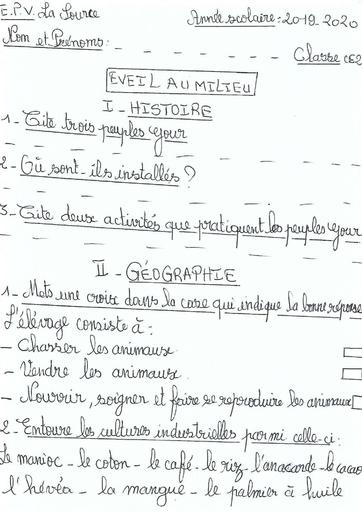 E.P.V. La Source Année scolaire: 2019-2020
Nom et Prénoms: Classe CE2
EVEIL AU MILIEU
I - HISTOIRE
1 - Cite trois peuples gour
2 - Où sont-ils installés ?
3 - Cite deux activités que pratiquent les peuples gour
II - GÉOGRAPHIE
1 - Mets une croix dans la case qui indique la bonne réponse
L'élévage consiste à :
- Chasser les animaux
- Vendre les animaux
- Nourrir, soigner et faire se reproduire les animaux
2 - Entoure les cultures industrielles parmi celle-ci:
Le manioc - le coton - le café - le riz - l'anacarde - le cacao
l'hévéa - la mangue - le palmier à huile